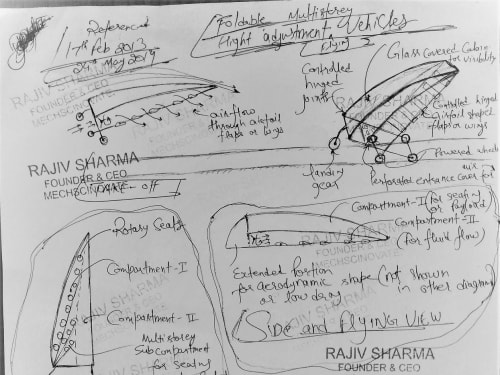 Referenced
17th Feb 2013
24th May 2019
Foldable Multistorey
Flight adjustment Vehicles
(Flying)
Controlled
hinged
joints
Glass Covered Cabin
for visibility
RAJIV SHARMA
FOUNDER & CEO
MECHSCINOVATE
air-flow
through airfoil
flaps or wings
Controlled hinged
airfoil shaped
flaps or wings
RAJIV SHARMA
FOUNDER & CEO
MECHSCINOVATE
RAJIV SHARMA
FOUNDER & CEO
MECHSCINOVATE
TAKE-off
landing
gear
Powered wheels
Perforated entrance cover for
air
Rotary Seats
Compartment-I
Compartment-II
Multistorey
Subcompartment
for seating
Compartment-I (for seating
or Payload)
Compartment-II
(for fluid flow)
Extended portion
for aerodynamic shape (not shown
or low drag in other diagrams)
SIDE and FLYING VIEW
RAJIV SHARMA
FOUNDER & CEO